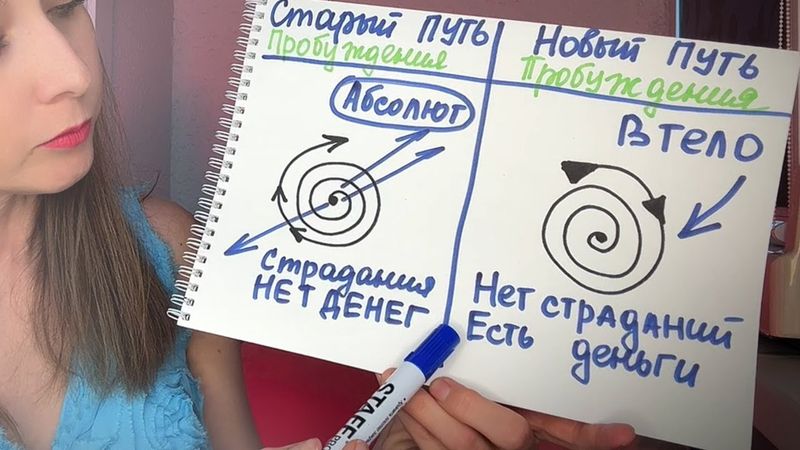 Старый ПУТЬ
Пробуждения
Абсолют
Страдания
НЕТ ДЕНЕГ
Новый ПУТЬ
Пробуждения
В ТЕЛО
Нет страданий
Есть деньги
STAFF